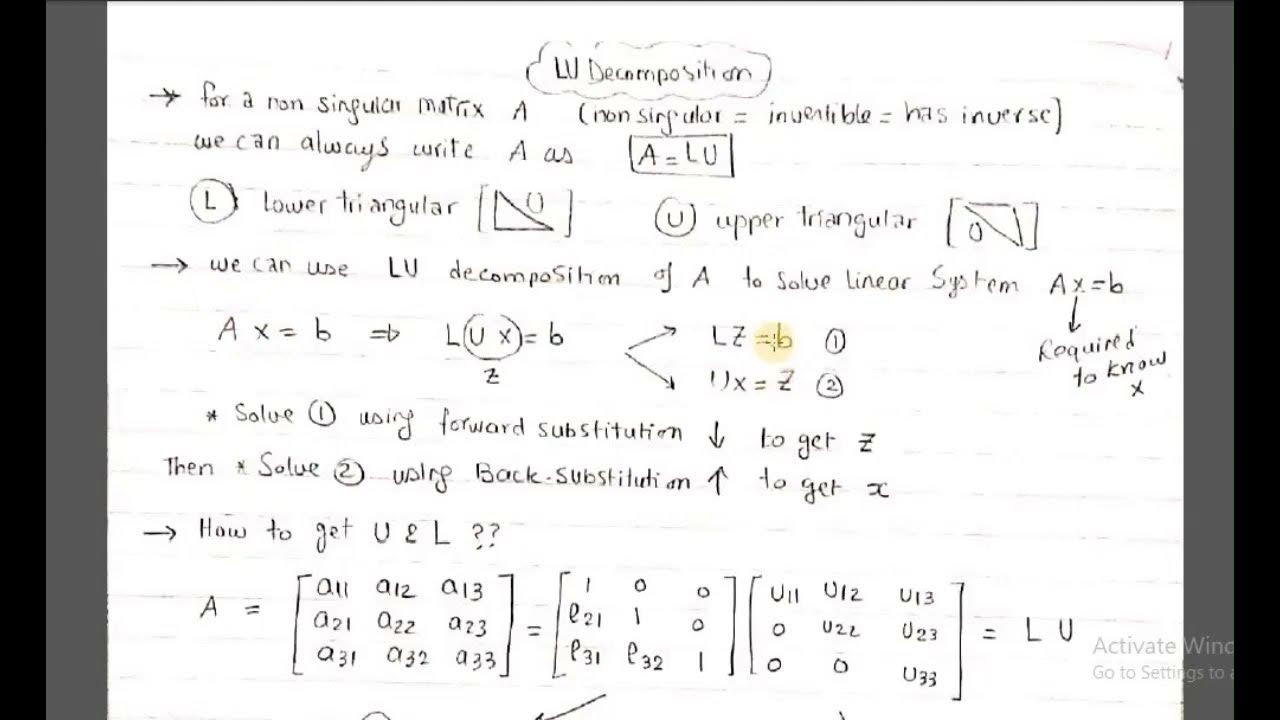 LU Decomposition
→ for a non singular matrix A (non singular = invertible = has inverse)
we can always write A as A = LU
L lower triangular [ 0 ] U upper triangular [ 0 ]
→ we can use LU decomposition of A to solve linear system Ax = b
A x = b ⇒ L(U x) = b LZ = b ①
z Ux = Z ②
Required to know x
* Solve ① using forward substitution ↓ to get Z
Then * Solve ② using Back-substitution ↑ to get x
→ How to get U & L ??
A = [a11 a12 a13 = [1 0 0 [U11 U12 U13 = L U
a21 a22 a23 ℓ21 1 0 0 U22 U23
a31 a32 a33] ℓ31 ℓ32 1] 0 0 U33]
Activate Wind
Go to Settings to a